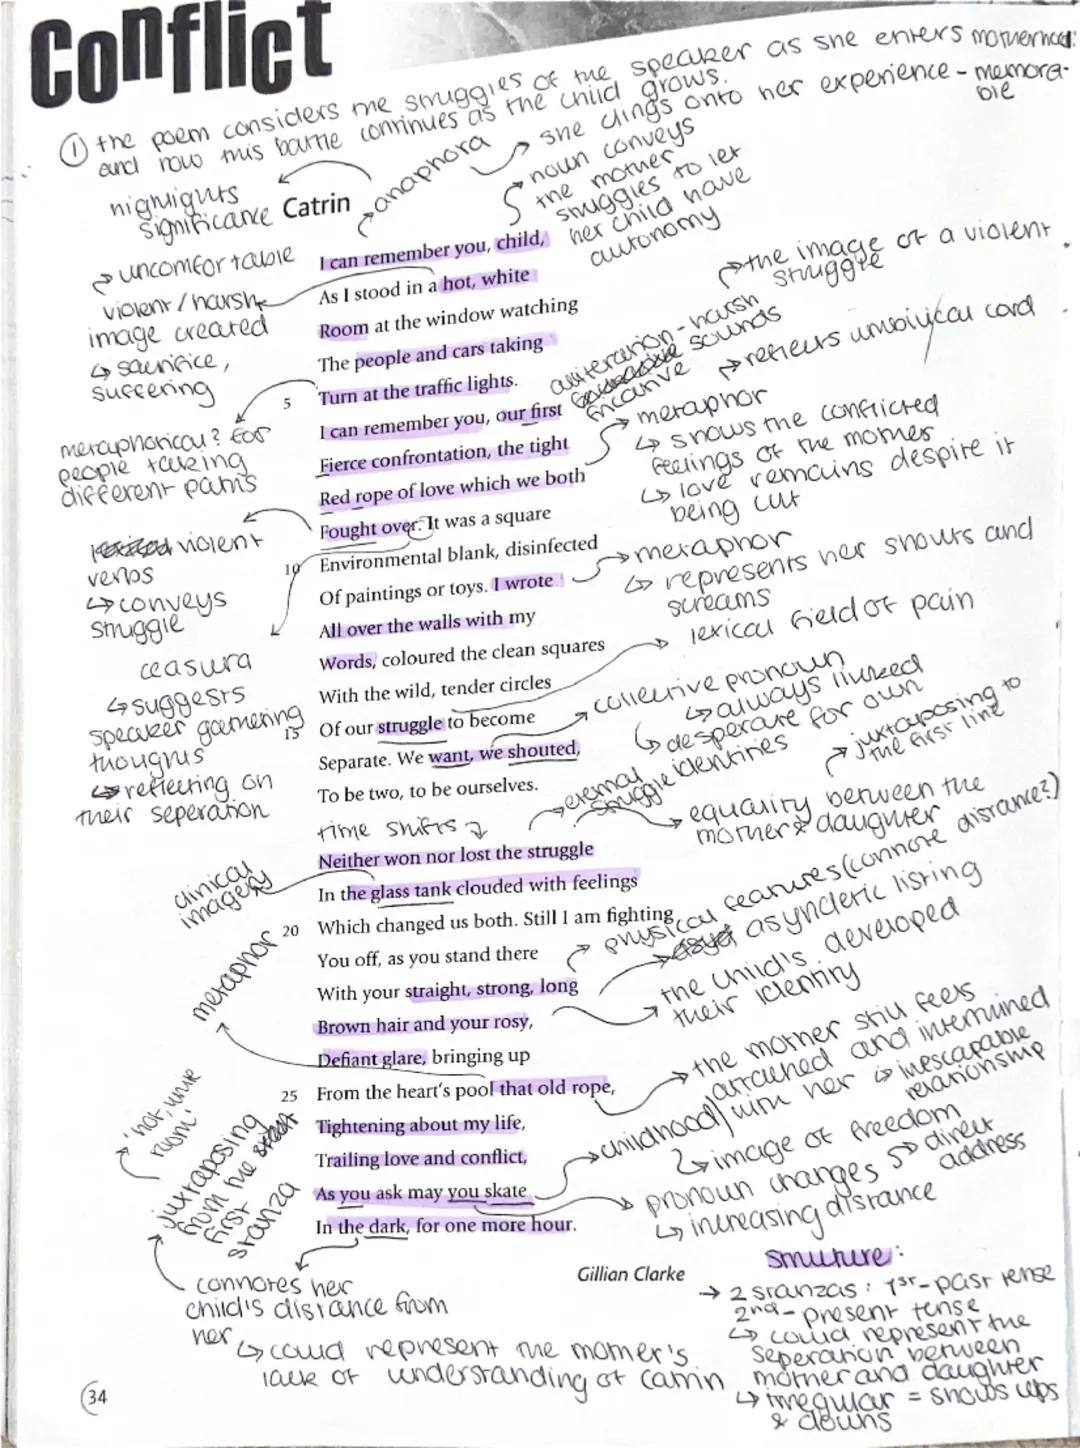 Conflict
① the poem considers the struggles of the speaker as she enters motherhood:
and how this battle continues as the child grows.
she clings onto her experience - memora-
ble
anaphora
highlights
significance
Catrin
noun conveys
the mother
struggles to let
her child have
autonomy
uncomfortable
violent / harsh
image created
↳ sacrifice,
suffering
I can remember you, child,
As I stood in a hot, white
Room at the window watching
The people and cars taking
5 Turn at the traffic lights.
I can remember you, our first
Fierce confrontation, the tight
Red rope of love which we both
Fought over. It was a square
10 Environmental blank, disinfected
Of paintings or toys. I wrote
All over the walls with my
Words, coloured the clean squares
With the wild, tender circles
15 Of our struggle to become
Separate. We want, we shouted,
To be two, to be ourselves.
the image of a violent
struggle
alliteration - harsh
sounds
fricative
reflects umbilical cord
metaphor
↳ shows the conflicted
feelings of the mother
↳ love remains despite it
being cut
metaphorical? for
people taking
different paths
violent
verbs
↳ conveys
struggle
metaphor
↳ represents her shouts and
screams
lexical field of pain
ceasura
↳ suggests
speaker gathering
thoughts
↳ reflecting on
their seperation
collective pronoun
↳ always linked
↳ desperate for own
identities
juxtaposing to
the first line
eternal
struggle
equality between the
mother & daughter
time shifts
clinical
imagery
Neither won nor lost the struggle
In the glass tank clouded with feelings
20 Which changed us both. Still I am fighting
You off, as you stand there
With your straight, strong, long
Brown hair and your rosy,
Defiant glare, bringing up
25 From the heart's pool that old rope,
Tightening about my life,
Trailing love and conflict,
As you ask may you skate
In the dark, for one more hour.
Gillian Clarke
physical features (connote distance?)
asyndetic listing
the child's developed
their identity
metaphor
the mother still feels
attached and intertwined
with her ↳ inescapable
relationship
childhood/
↳ image of freedom
pronoun changes → direct
address
↳ increasing distance
'hot, white
room'
juxtaposing
from the
first
stanza
connotes her
child's distance from
her
↳ could represent the mother's
lack of understanding of Catrin
structure:
→ 2 stanzas: 1st - past tense
2nd - present tense
↳ could represent the
seperation between
mother and daughter
↳ irregular = shows ups
& downs
34